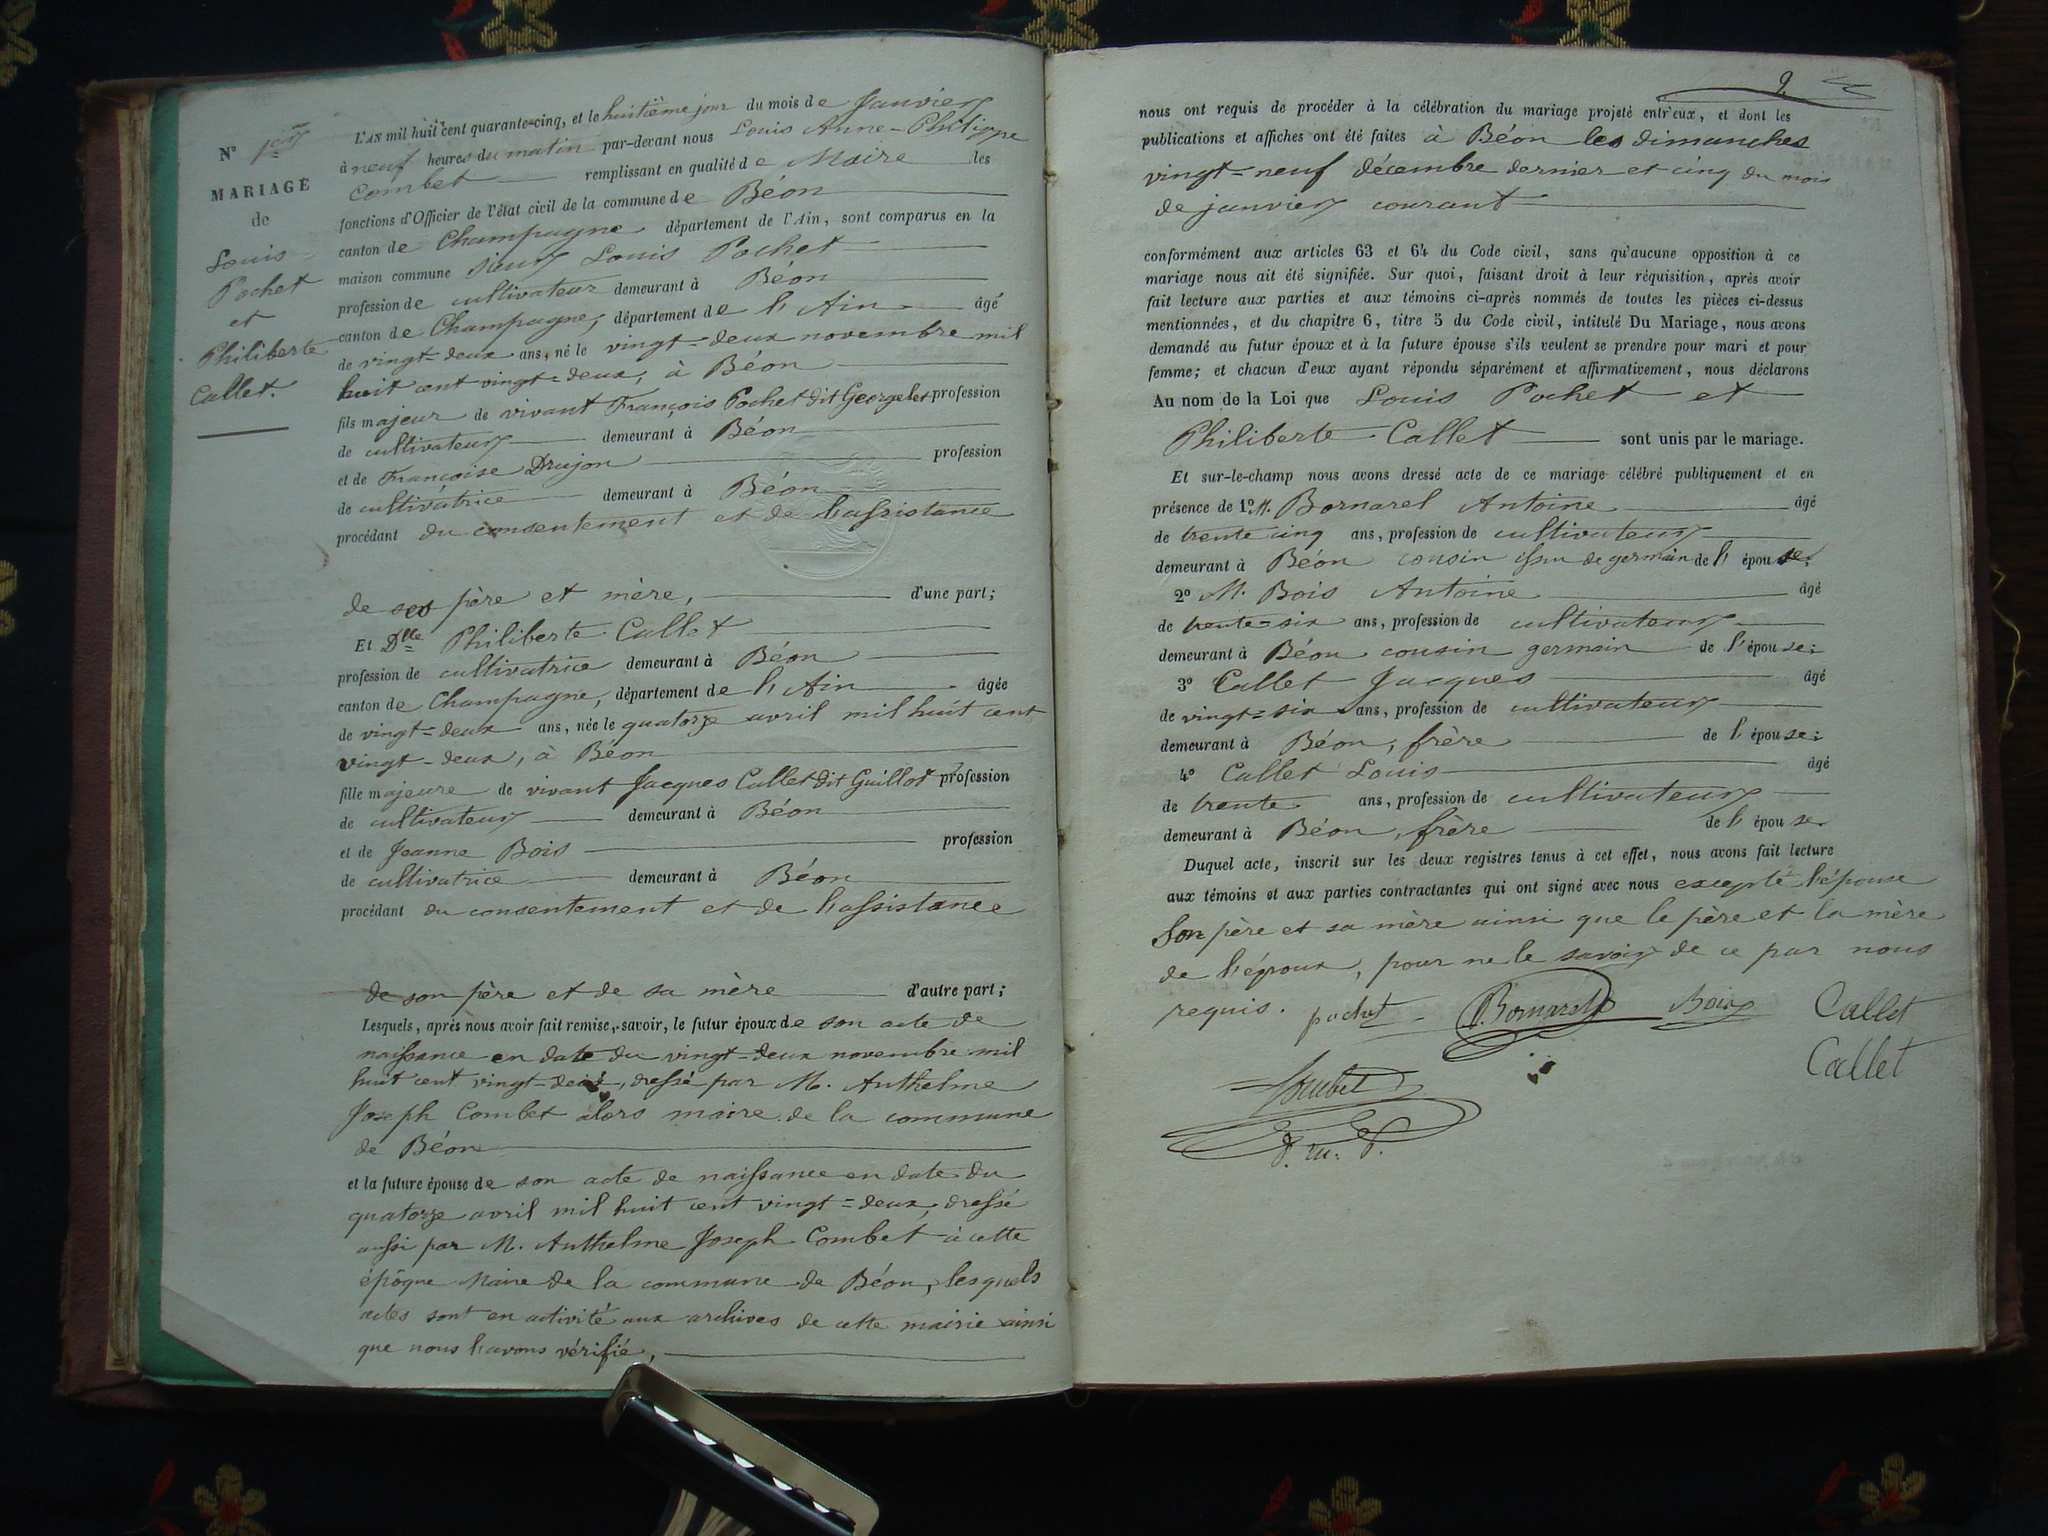 N° 1er
MARIAGE
de
Louis
Pochet
et
Philiberte
Callet.
L'AN mil huit cent quarante-cinq, et le huitième jour du mois de Janvier
à neuf heures du matin par-devant nous Louis Anne-Philippe
Combet remplissant en qualité de Maire les
fonctions d'Officier de l'état civil de la commune de Béon
canton de Champagne département de l'Ain, sont comparus en la
maison commune sieur Louis Pochet
profession de cultivateur demeurant à Béon
canton de Champagne, département de l'Ain âgé
de vingt-deux ans, né le vingt-deux novembre mil
huit cent vingt-deux, à Béon
fils majeur de vivant François Pochet dit Georgelet profession
de cultivateur demeurant à Béon
et de Françoise Drujon profession
de cultivatrice demeurant à Béon
procédant du consentement et de l'assistance
de ses père et mère, d'une part;
Et Dlle Philiberte Callet
profession de cultivatrice demeurant à Béon
canton de Champagne, département de l'Ain âgée
de vingt-deux ans, née le quatorze avril mil huit cent
vingt-deux, à Béon
fille majeure de vivant Jacques Callet dit Guillot profession
de cultivateur demeurant à Béon
et de Jeanne Bois profession
de cultivatrice demeurant à Béon
procédant du consentement et de l'assistance
de son père et de sa mère d'autre part;
Lesquels, après nous avoir fait remise, savoir, le futur époux de son acte de
naissance en date du vingt-deux novembre mil
huit cent vingt-deux, dressé par M. Anthelme
Joseph Combet alors maire de la commune
de Béon
et la future épouse de son acte de naissance en date du
quatorze avril mil huit cent vingt-deux, dressé
aussi par M. Anthelme Joseph Combet à cette
époque Maire de la commune de Béon, lesquels
actes sont en activité aux archives de cette mairie ainsi
que nous l'avons vérifié,
2
nous ont requis de procéder à la célébration du mariage projeté entr'eux, et dont les
publications et affiches ont été faites à Béon les dimanches
vingt-neuf décembre dernier et cinq du mois
de janvier courant
conformément aux articles 63 et 64 du Code civil, sans qu'aucune opposition à ce
mariage nous ait été signifiée. Sur quoi, faisant droit à leur réquisition, après avoir
fait lecture aux parties et aux témoins ci-après nommés de toutes les pièces ci-dessus
mentionnées, et du chapitre 6, titre 5 du Code civil, intitulé Du Mariage, nous avons
demandé au futur époux et à la future épouse s'ils veulent se prendre pour mari et pour
femme; et chacun d'eux ayant répondu séparément et affirmativement, nous déclarons
Au nom de la Loi que Louis Pochet et
Philiberte Callet sont unis par le mariage.
Et sur-le-champ nous avons dressé acte de ce mariage célébré publiquement et en
présence de 1° M. Bornarel Antoine âgé
de trente cinq ans, profession de cultivateur
demeurant à Béon cousin issu de germain de l'épouse;
2° M. Bois Antoine âgé
de trente-six ans, profession de cultivateur
demeurant à Béon cousin germain de l'épouse;
3° Callet Jacques âgé
de vingt-six ans, profession de cultivateur
demeurant à Béon, frère de l'épouse;
4° Callet Louis âgé
de trente ans, profession de cultivateur
demeurant à Béon, frère de l'épouse.
Duquel acte, inscrit sur les deux registres tenus à cet effet, nous avons fait lecture
aux témoins et aux parties contractantes qui ont signé avec nous excepté l'épouse
son père et sa mère ainsi que le père et la mère
de l'époux, pour ne le savoir de ce par nous
requis. pochet Bornarel Bois Callet
Callet